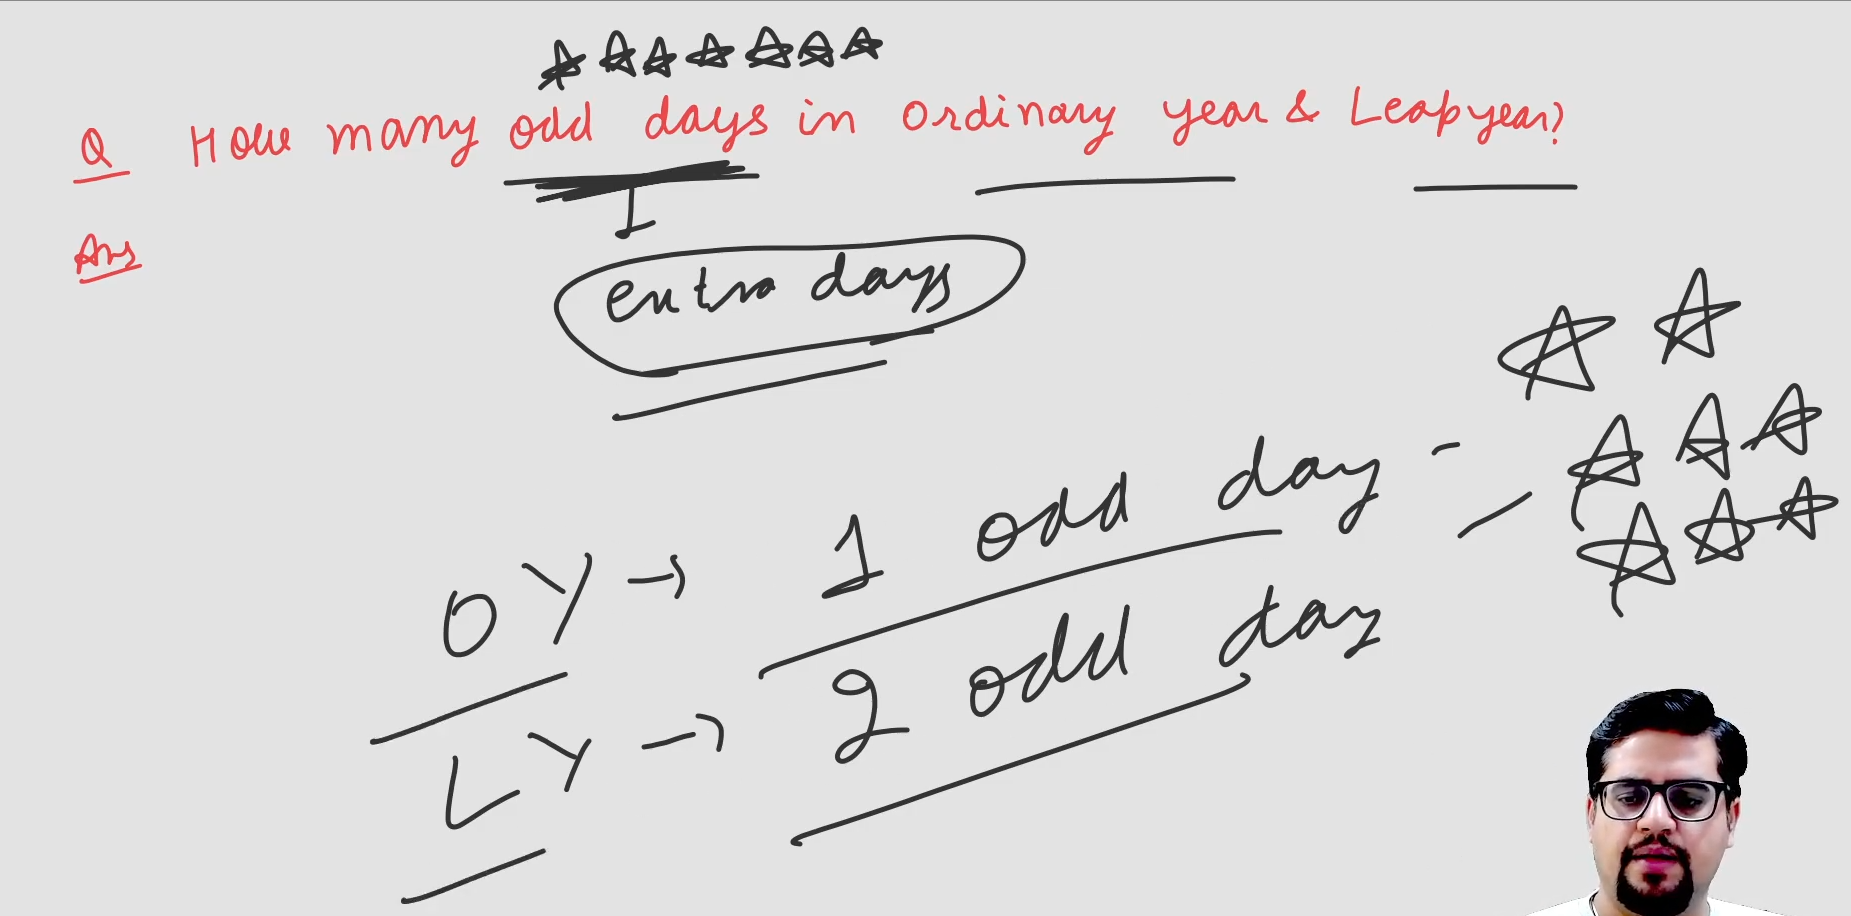 Q How many odd days in Ordinary year & Leap year?
Ans
extra days
OY → 1 odd day
LY → 2 odd day